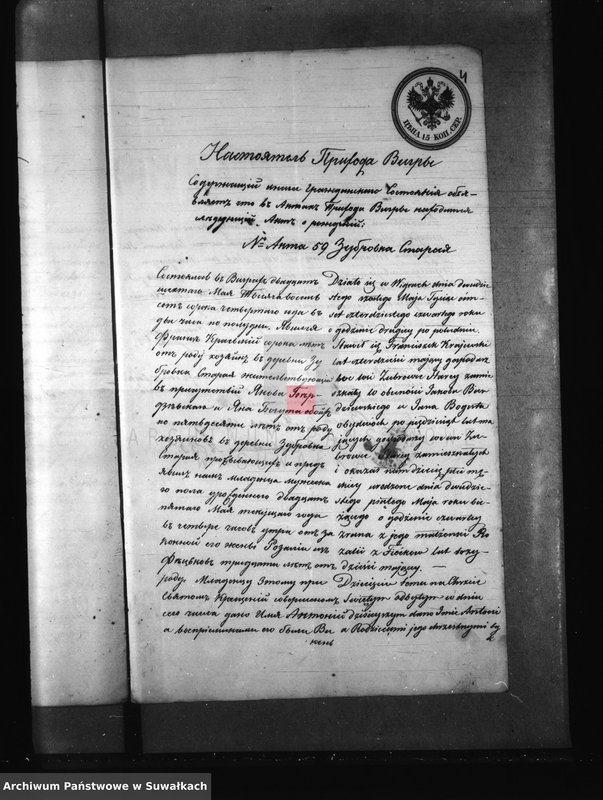 4
ЦѢНА 15 КОП. СЕР.
Настоятель Прихода Вигры
Содержащій книги Гражданскаго Состоянія объя-
вляетъ что въ Актахъ Прихода Вигры находится
слядующій. Актъ о рожденіи:
№ Акта 59 Зубровка Старая
Состоялось въ Виграхъ двадцать
шестаго Мая Тысяча восемь
сотъ сорокъ четвертаго года въ
два часа по полудни. Явился
Францъ Краевскій сорока лѣтъ
отъ роду хозяинъ въ деревни Зу-
бровка Старая жительствующій
въ присутствіи Якова
и Яна Богута обоихъ
по пятьдесятъ лѣтъ отъ роду
хозяиновъ въ деревни Зубровка
Старая проживающихъ и предъ
явилъ намъ младенца мужеска
го пола урожденнаго двадцать
пятаго Мая текущаго года
въ четыре часовъ утра отъ за
конной его жены Розаліи изъ
тридцати лѣтъ отъ
роду. Младенцу этому при
Святомъ Крещеніи совершенномъ
сего числа дано Имя Антоній
а воспріемниками его были Ви
кень
Działo się w Wigrach dnia dwudzie
stego szóstego Maja Tysiąc ośm-
set czterdziestego czwartego roku
o godzinie drugiej po południu.
Stawił się Franciszek Krajewski
lat czterdzieści mający gospodarz
we wsi Zubrowce Starej zamie
szkały w obecności Jakóba
i Jana Boguta
obydwóch po pięćdziesiąt lat ma
jących gospodarzy we wsi Zu
browce Starej zamieszkałych
i okazał nam dziecię płci mę-
skiej urodzone dnia dwudzie-
stego piątego Maja roku bie
żącego o godzinie czwartej
z rana z jego małżonki Ro
zalii z lat trzy-
dzieści mającej. —
Dziecięciu temu na Chrzcie
Świętym odbytym w dniu
dzisiejszym dano Imie Antoni
a Rodzicami jego chrzestnymi by
Archiwum Państwowe w Suwałkach